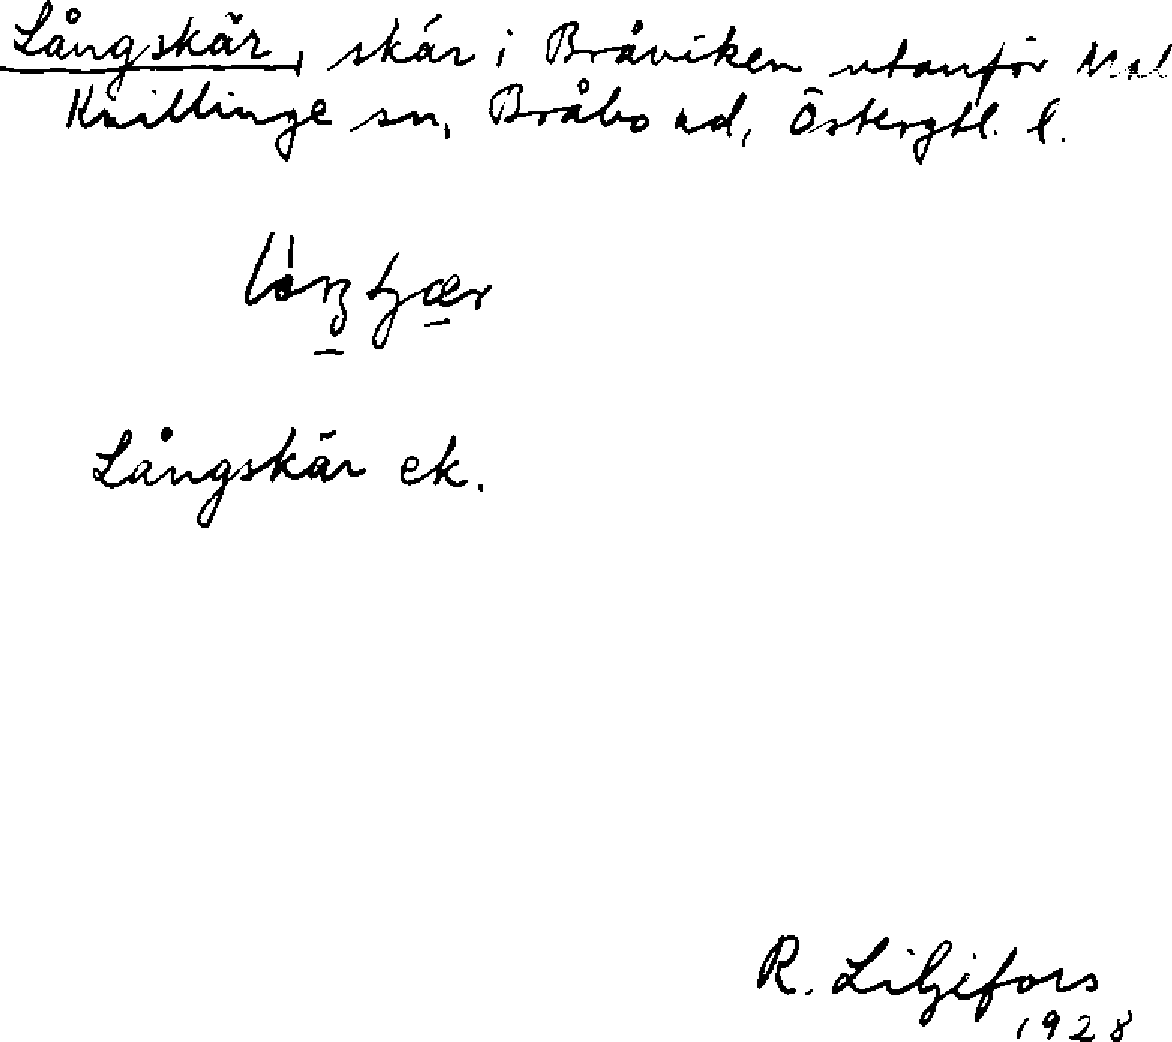 Långskär, skär i Bråviken utanför
Kvillinge sn, Bråbo hd, Östergtl. l.
Långskär ek.
R. Liljefors
1928